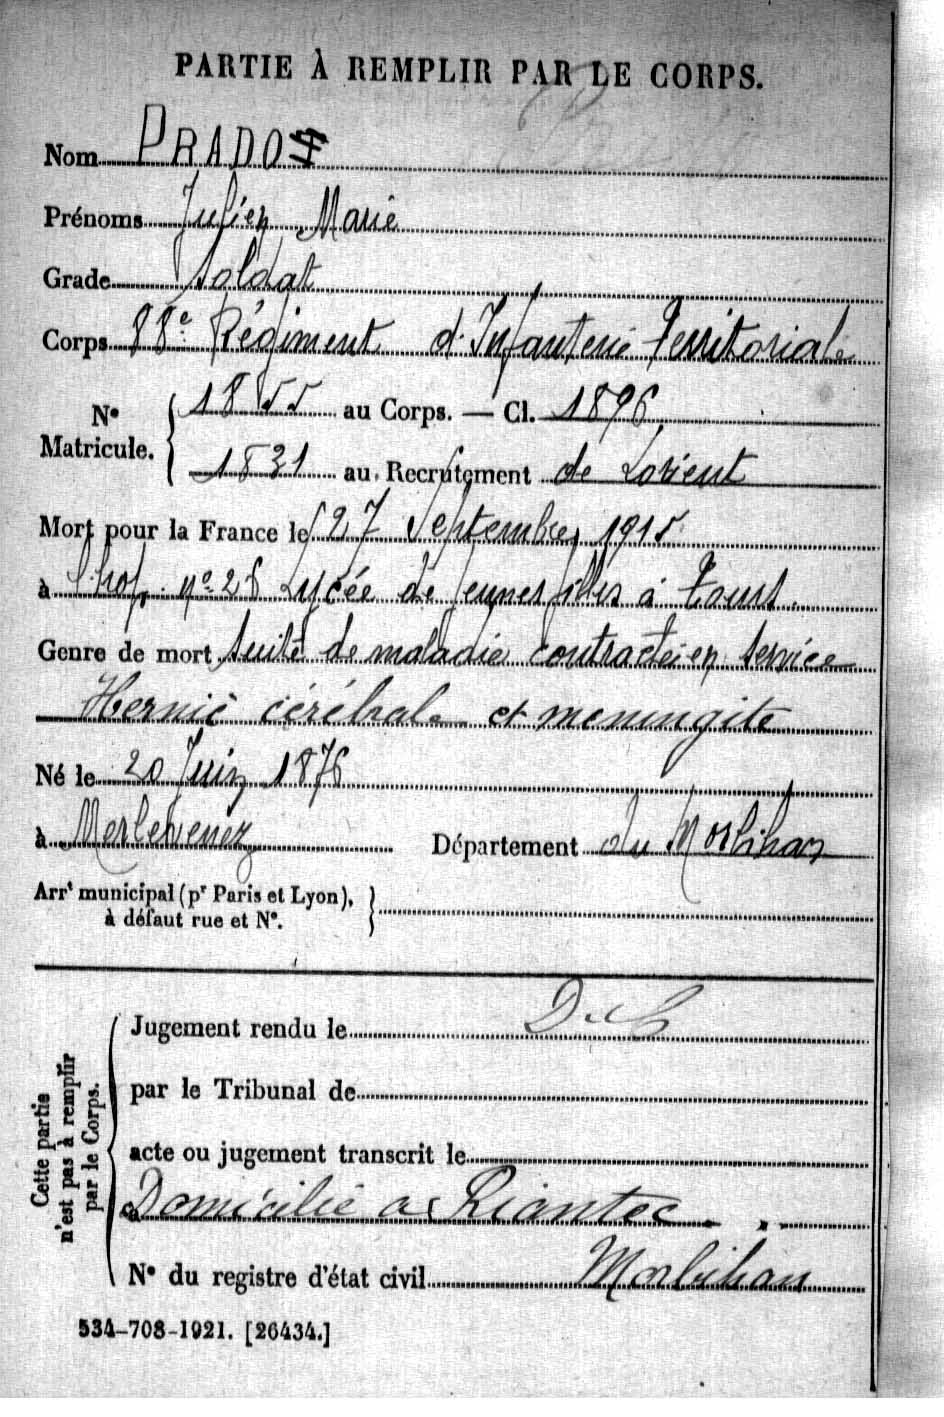 PARTIE À REMPLIR PAR LE CORPS.
Nom PRADO
Prénoms Julien Marie
Grade Soldat
Corps 88e Régiment d'Infanterie Territoriale
N° Matricule. 1855 au Corps. — Cl. 1896
1831 au Recrutement de Lorient
Mort pour la France le 27 Septembre 1915
à l'hop. n° 26 Lycée de Jeunes filles à Tours.
Genre de mort suite de maladie contractée en service
Hernie cérébrale et meningite
Né le 20 Juin 1876
à Merlevenez Département du Morbihan
Arrt municipal (pr Paris et Lyon),
à défaut rue et N°.
Cette partie
n'est pas à remplir
par le Corps.
Jugement rendu le
par le Tribunal de
acte ou jugement transcrit le
à Domicilié à Riantec
N° du registre d'état civil Morbihan
534-708-1921. [26434.]